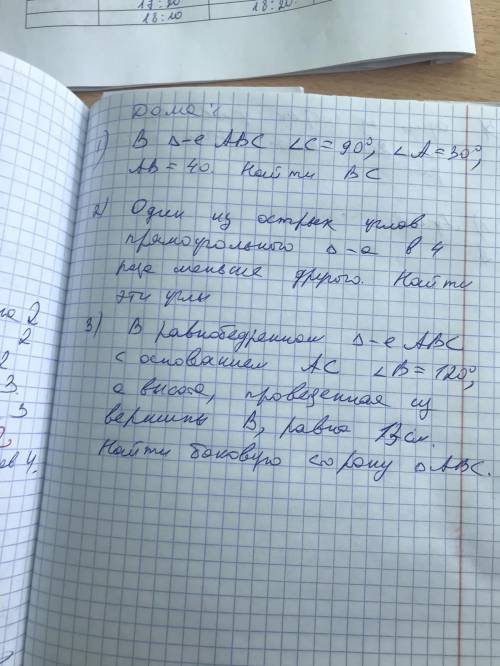 17:20
18:10
18:20.
Дома:
1) В Δ-е ABC ∠C = 90°, ∠A = 30°,
AB = 40. Найти BC
2) Один из острых углов
прямоугольного Δ-а в 4
раза меньше другого. Найти
эти углы
3) В равнобедренном Δ-е ABC
с основанием AC ∠B = 120°,
а высота, проведенная из
вершины B, равна 13 см.
Найти боковую сторону Δ ABC.
2
2
2
3.
3
4.